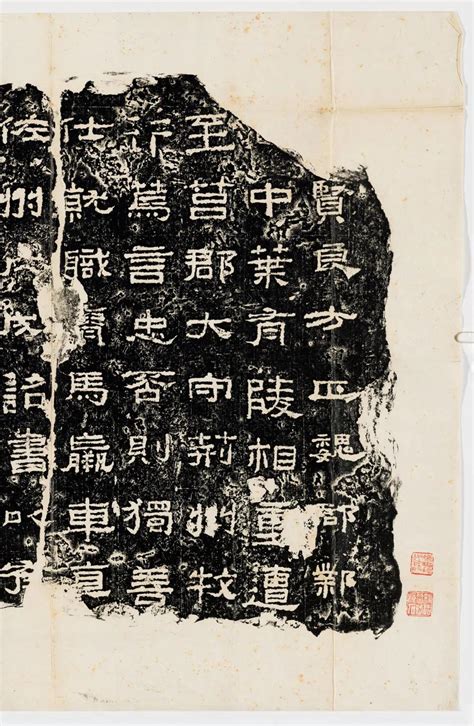 賢良方正魏郡鄴
中葉有陵相重遭
至莒郡大守荊州牧
行篤言忠否則獨善
仕就職馬羸車
佐州詔書